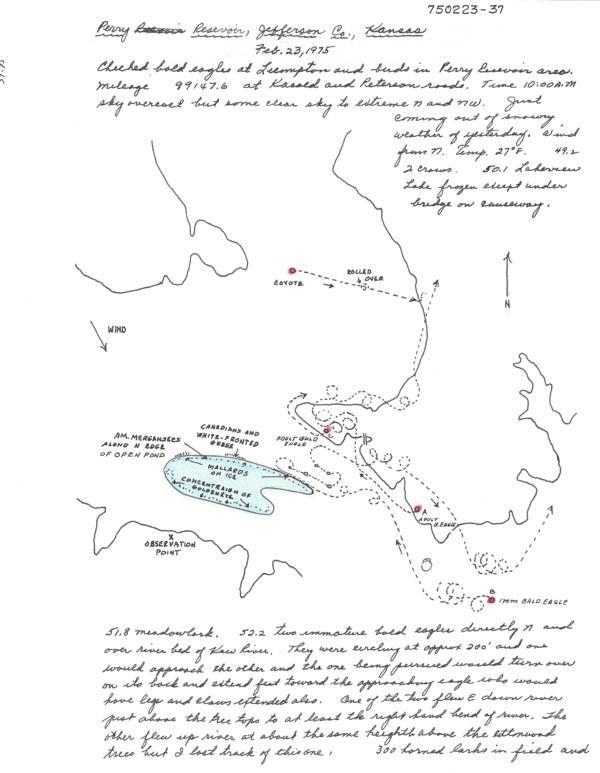 750223-37
Perry Resevoir, Jefferson Co., Kansas
Feb. 23, 1975
Checked bald eagles at Lecompton and birds in Perry Resevoir area.
Mileage 99147.6 at Kasold and Peterson roads. Time 10:00 A.M
sky overcast but some clear sky to extreme N and NW. Just
coming out of snowy
weather of yesterday. Wind
from N. Temp. 27°F. 49.2
2 crows. 50.1 Lakeview
Lake frozen except under
bridge on causeway.
COYOTE
ROLLED
OVER
N
WIND
AM. MERGANSERS
ALONG N EDGE
OF OPEN POND
CANADIANS AND
WHITE-FRONTED
GEESE
ADULT BALD
EAGLE
MALLARDS
ON ICE
CONCENTRAION OF
GOLDENEYE
A
ADULT
B. EAGLE
X
OBSERVATION
POINT
B
IMM BALD EAGLE
51.8 meadowlark. 52.2 two immature bald eagles directly N and
over river bed of Kaw River. They were circling at approx 200' and one
would approach the other and the one being pursued would turn over
on its back and extend feet toward the approaching eagle who would
have legs and claws extended also. One of the two flew E down river
just above the tree tops to at least the right hand bend of river. The
other flew up river at about the same heighth above the cottonwood
trees but I lost track of this one. 300 horned larks in field and